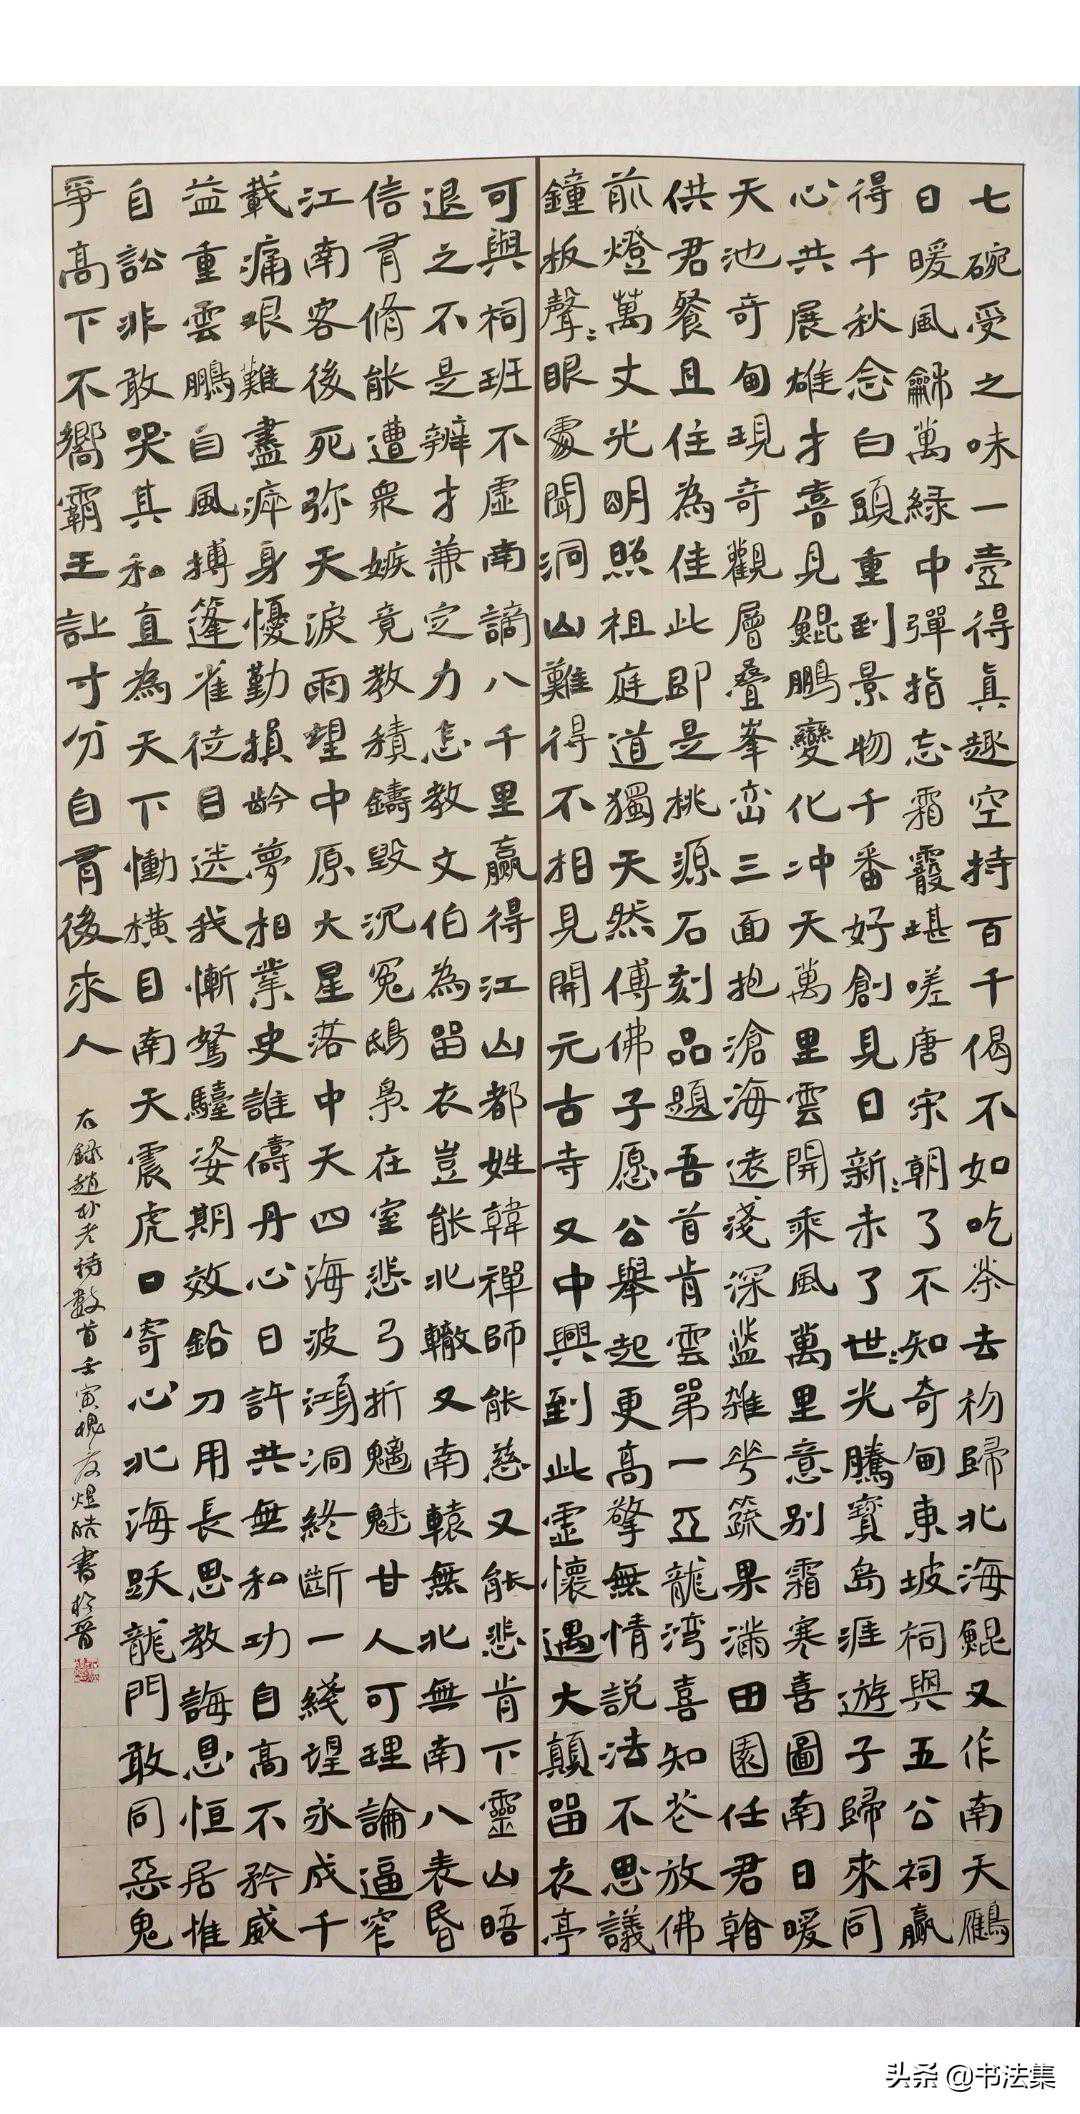 七碗受之味一壺得真趣空持百千偈不如吃茶去初歸北海鯤又作南天鷗
日暖風龢萬緑中彈指忘霜霰堪嗟唐宋朝了不知奇甸東坡祠與五公祠贏
得千秋念白頭重到景物千番好創見日新未了世光騰寶島涯遊子歸來同
心共展雄才喜見鯤鵬變化冲天萬里雲開乘風萬里意别霜寒喜圖南日暖
天池奇甸現奇觀層疊峯巒三面抱滄海遠淺深藍雜花蔬果滿田園任君翰
供君餐且住為佳此即是桃源石刻品題吾首肯雲第一亞龍湾喜知花放佛
前燈萬丈光明照祖庭道獨天然傳佛子愿公舉起更高擎無情説法不思議
鐘板聲眼處聞洞山難得不相見開元古寺又中興到此虚懷遇大顛留衣亭
可與祠班不虚南謫八千里贏得江山都姓韓禪師能慈又能悲肯下靈山晤
退之不是辨才兼定力怎教文伯為留衣豈能北轍又南轅無北無南八表昏
信有脩能遭衆嫉竟教積鑄毀沉冤鴟梟在室悲弓折魑魅甘人可理論逼窄
江南客後死弥天淚雨望中原大星落中天四海波澒洞終斷一綫望永成千
載痛艰難盡瘁身憂勤損齡夢相業史誰儔丹心日許共無私功自高不矜威
益重雲鵬自風搏篷雀徒目送我慚駑駘姿期效鉛刀用長思教誨恩恒居惟
自訟非敢哭其私直為天下慟横目南天震虎口寄心北海跃龍門敢同惡鬼
爭高下不嚮霸王讓寸分自有後來人
右録趙朴老诗數首壬寅槐夏煜皓書於晋
头条 @书法集